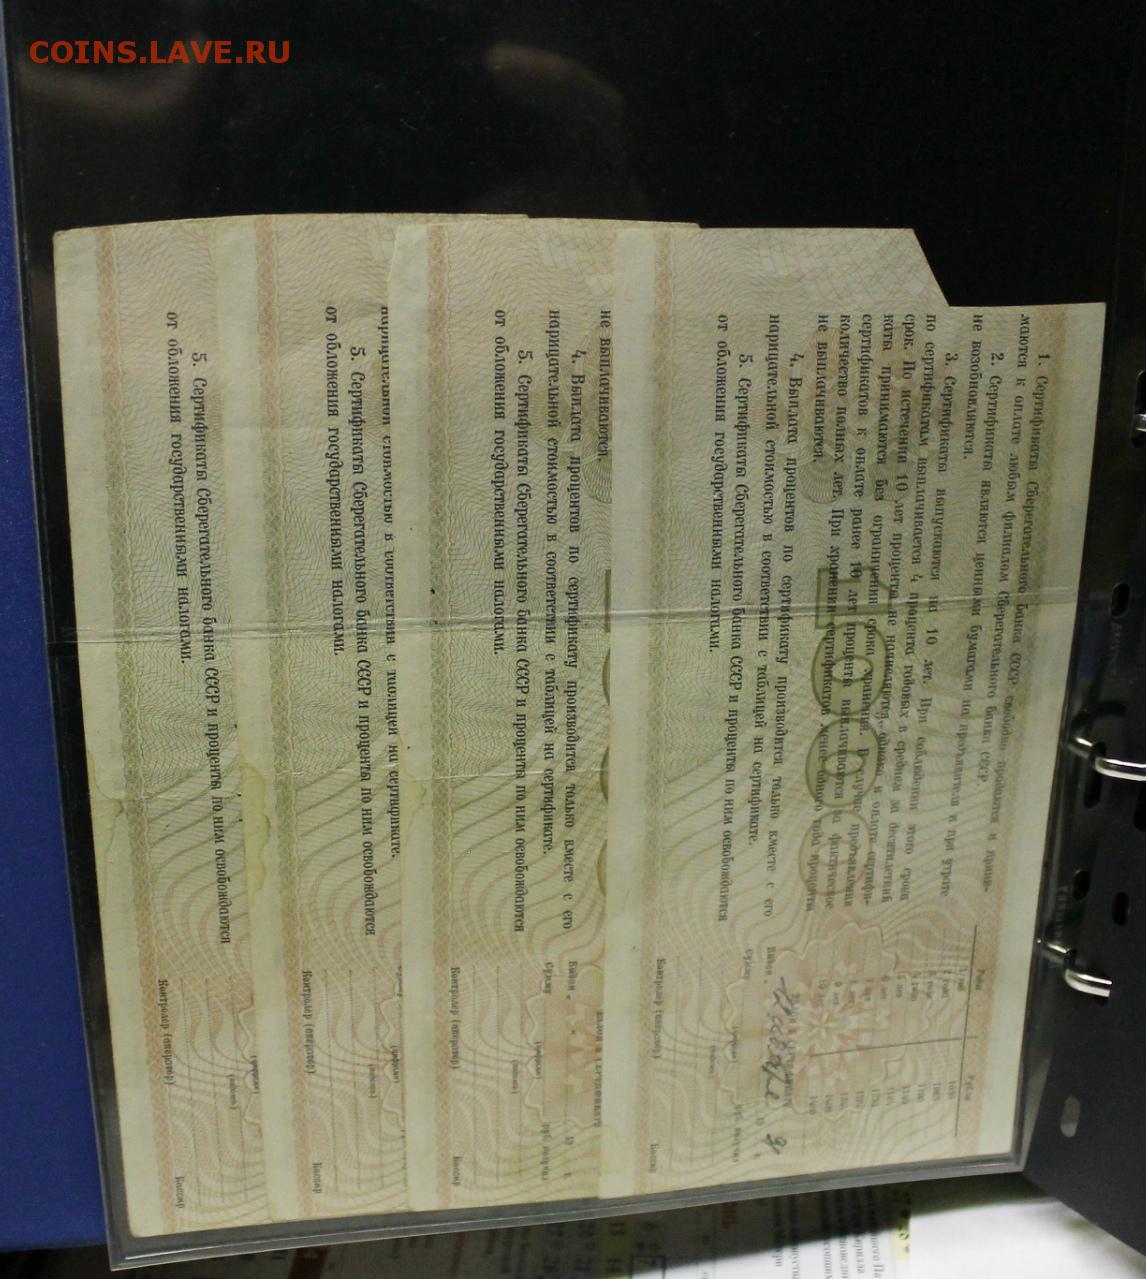 COINS.LAVE.RU
1. Сертификаты Сберегательного банка СССР свободно продаются и прини-
маются к оплате любым филиалом Сберегательного банка СССР.
2. Сертификаты являются ценными бумагами на предъявителя и при утрате
не возобновляются.
3. Сертификаты выпускаются на 10 лет. При соблюдении этого срока
по сертификатам выплачивается 4 процента годовых в среднем за десятилетний
срок. По истечении 10 лет проценты не начисляются, однако к оплате сертифи-
каты принимаются без ограничения срока хранения. В случае предъявления
сертификатов к оплате ранее 10 лет проценты выплачиваются за фактическое
количество полных лет. При хранении сертификатов менее одного года проценты
не выплачиваются.
4. Выплата процентов по сертификату производится только вместе с его
нарицательной стоимостью в соответствии с таблицей на сертификате.
5. Сертификаты Сберегательного банка СССР и проценты по ним освобождаются
от обложения государственными налогами.
Рубли
Выдан
19 г.
Сумму
(цифрами)
руб. получил
(подпись)
Контролер (оператор)
Кассир
не выплачиваются.
4. Выплата процентов по сертификату производится только вместе с его
нарицательной стоимостью в соответствии с таблицей на сертификате.
5. Сертификаты Сберегательного банка СССР и проценты по ним освобождаются
от обложения государственными налогами.
Выдан
19 г.
Сумму
(цифрами)
руб. получил
(подпись)
Контролер (оператор)
Кассир
нарицательной стоимостью в соответствии с таблицей на сертификате.
5. Сертификаты Сберегательного банка СССР и проценты по ним освобождаются
от обложения государственными налогами.
(цифрами)
(подпись)
Контролер (оператор)
Кассир
5. Сертификаты Сберегательного банка СССР и проценты по ним освобождаются
от обложения государственными налогами.
(цифрами)
(подпись)
Контролер (оператор)
Кассир